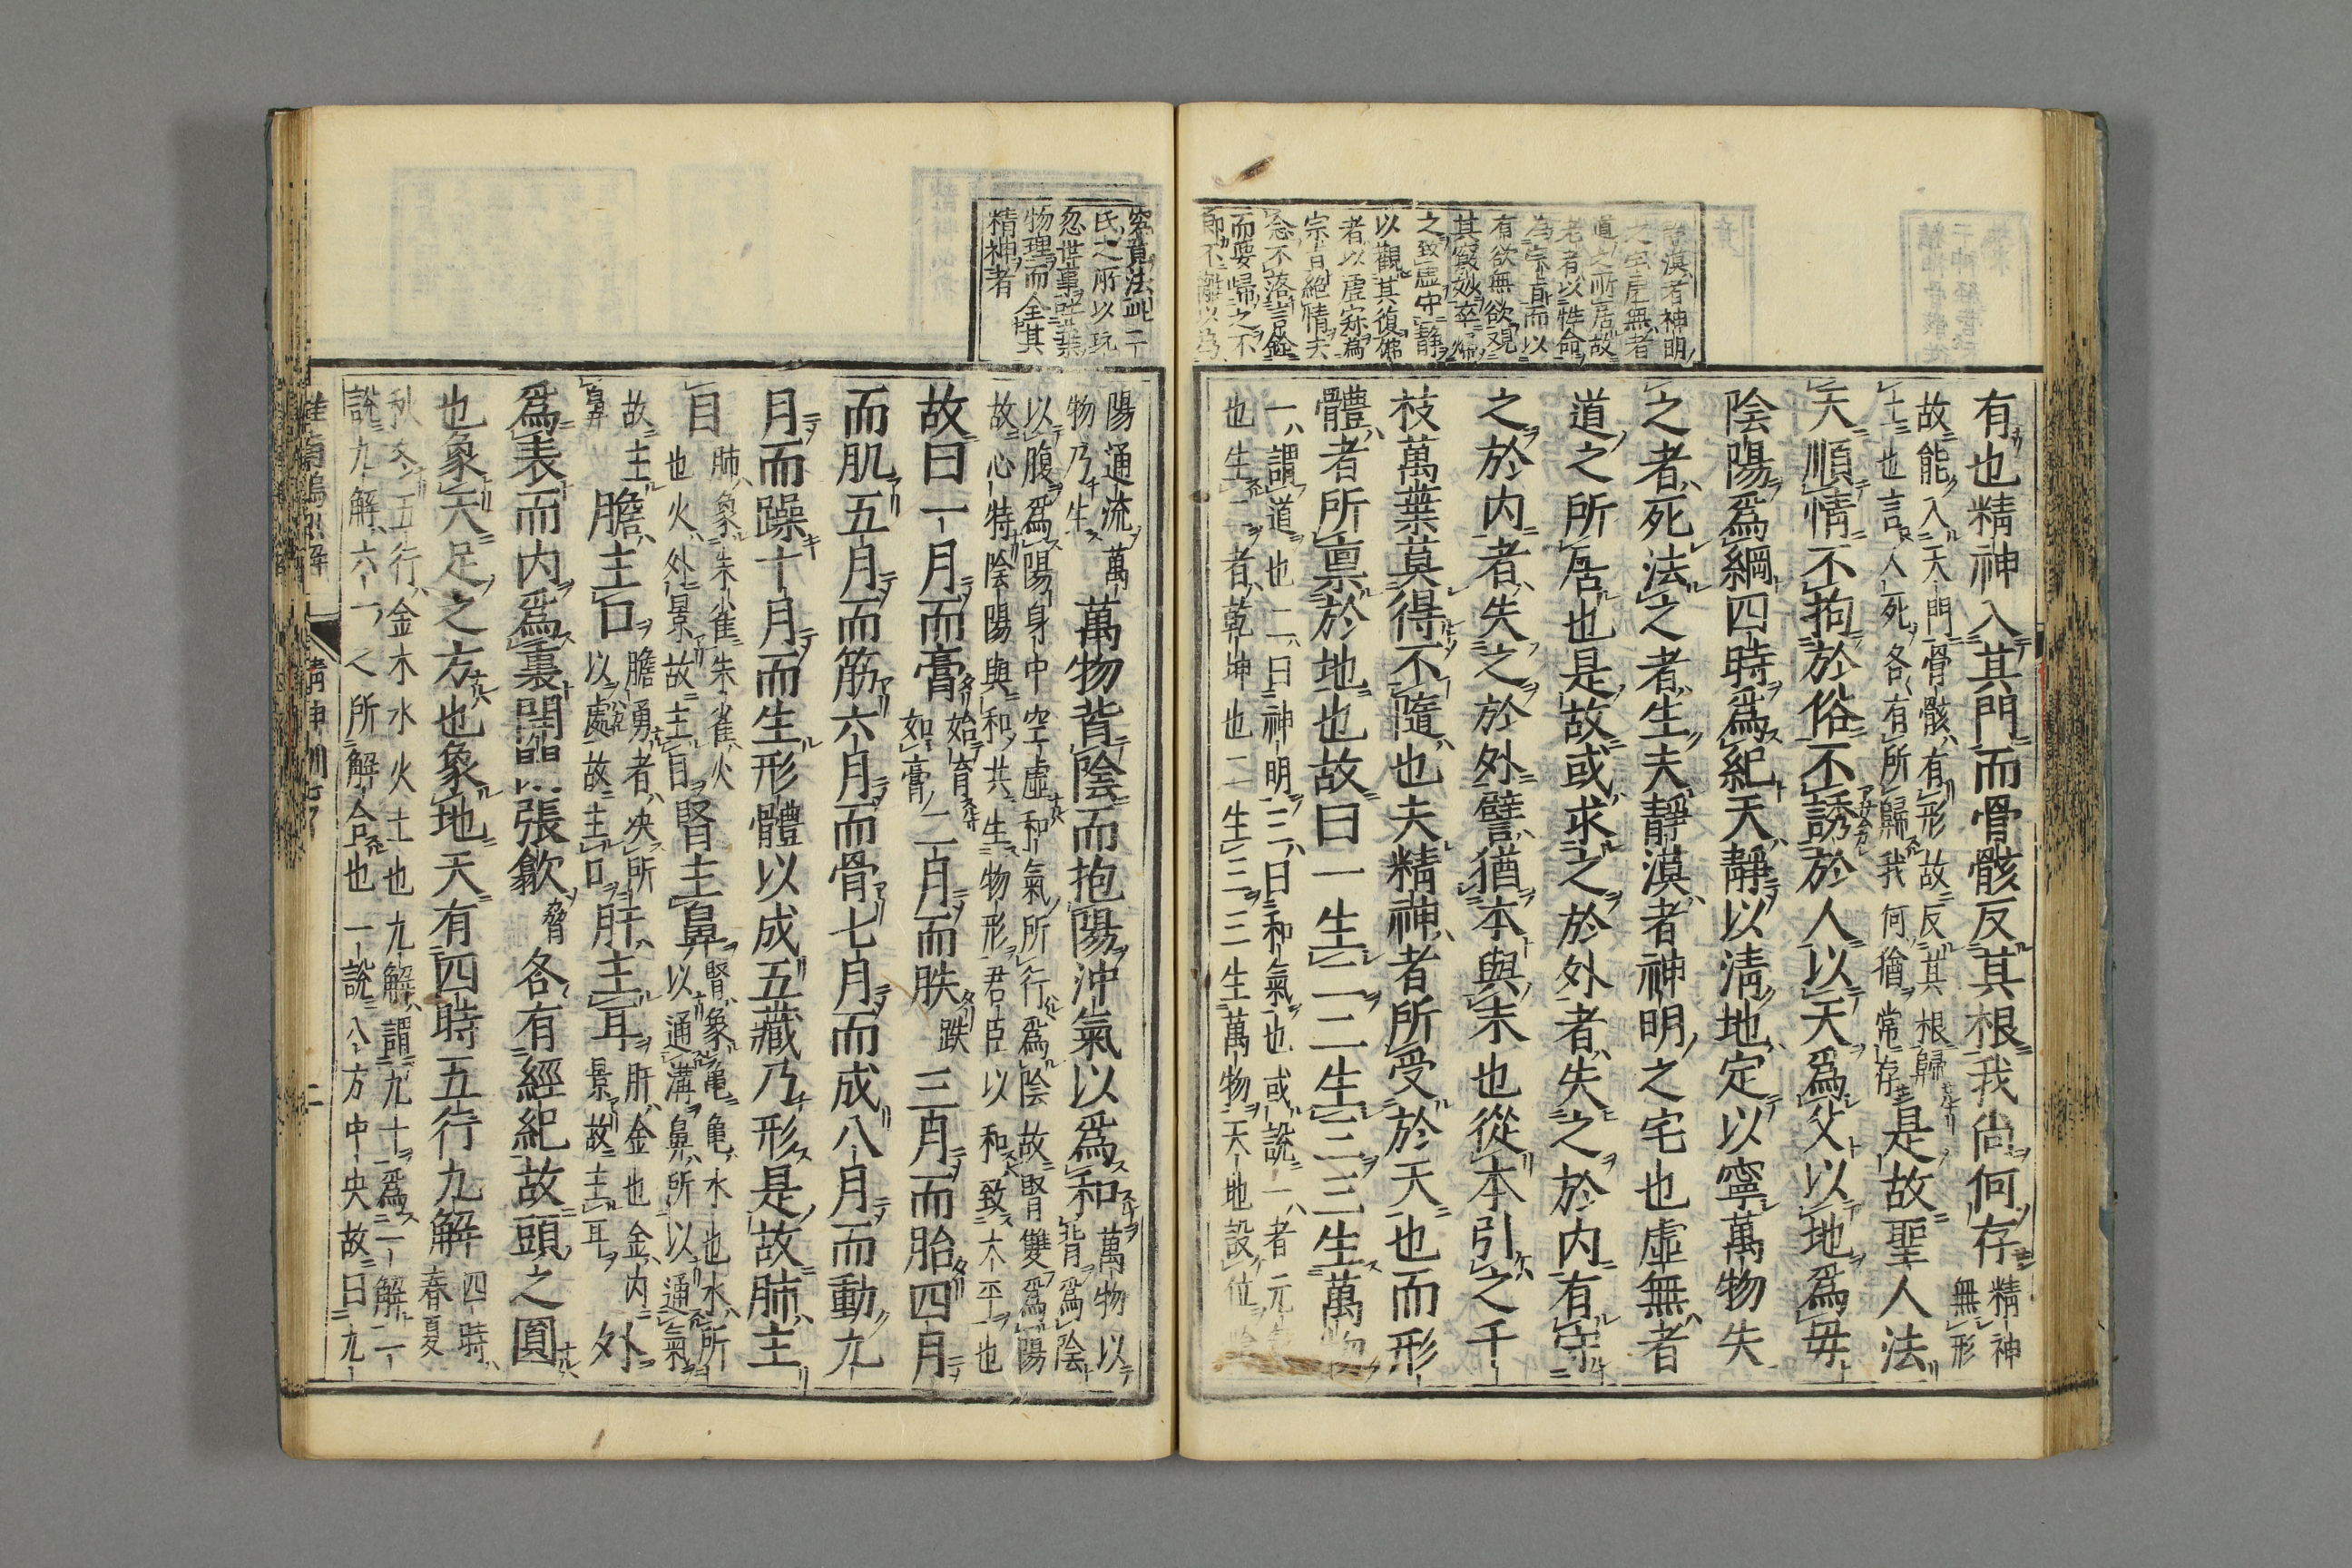 静漠者神明
之宅虚無者
道之所居故
老者以性命
為宗旨而以
有欲無欲覌
其竅妙卒歸
之致虚守静
以觀其復佛
者以虚寂為
宗旨絶情夫
念不落言詮
而要歸之不
即不離以爲
有也精神入其門而骨骸反其根我尚何存精神無形
故能入天門骨骸有形故反其根歸
土也言人死各有所歸我何猶常存是故聖人法
天順情不拘於俗不誘於人以天爲父以地爲母
陰陽爲綱四時爲紀天靜以淸地定以寧萬物失
之者死法之者生夫靜漠者神明之宅也虛無者
道之所居也是故或求之於外者失之於内有守
之於内者失之於外譬猶本與末也從本引之千
枝萬葉莫得不隨也夫精神者所受於天也而形
體者所禀於地也故曰一生二二生三三生萬物
一謂道也二曰神明三曰和氣也或說一者元氣
也生二者乾坤也二生三三生萬物天地設位陰
究竟法此二
氏之所以玩
忽世事
物理而全其
精神者
陽通流萬
物乃生萬物背陰而抱陽沖氣以爲和萬物以背爲陰
以腹爲陽身中空虛和氣所行爲陰故腎雙爲陽
故心特陰陽與和共生物形君臣以和致太平也
故曰一月而膏始育如膏二月而胅跌三月而胎四月
而肌五月而筋六月而骨七月而成八月而動九
月而躁十月而生形體以成五藏乃形是故肺主
目肺象朱雀朱雀火也火外景故主目腎主鼻腎象龜龜水也水所以通溝鼻所以通氣
故主鼻膽主口膽勇者决所以處故主口肝主耳肝金也金内景故主耳外
爲表而内爲裏開閉張歙脅各有經紀故頭之圓
也象天足之方也象地天有四時五行九解四時春夏
秋冬五行金木水火土也九解謂九十爲一解一
說九解六一之所解合也一說八方中央故曰九
淮南鴻烈解 精神訓七 二